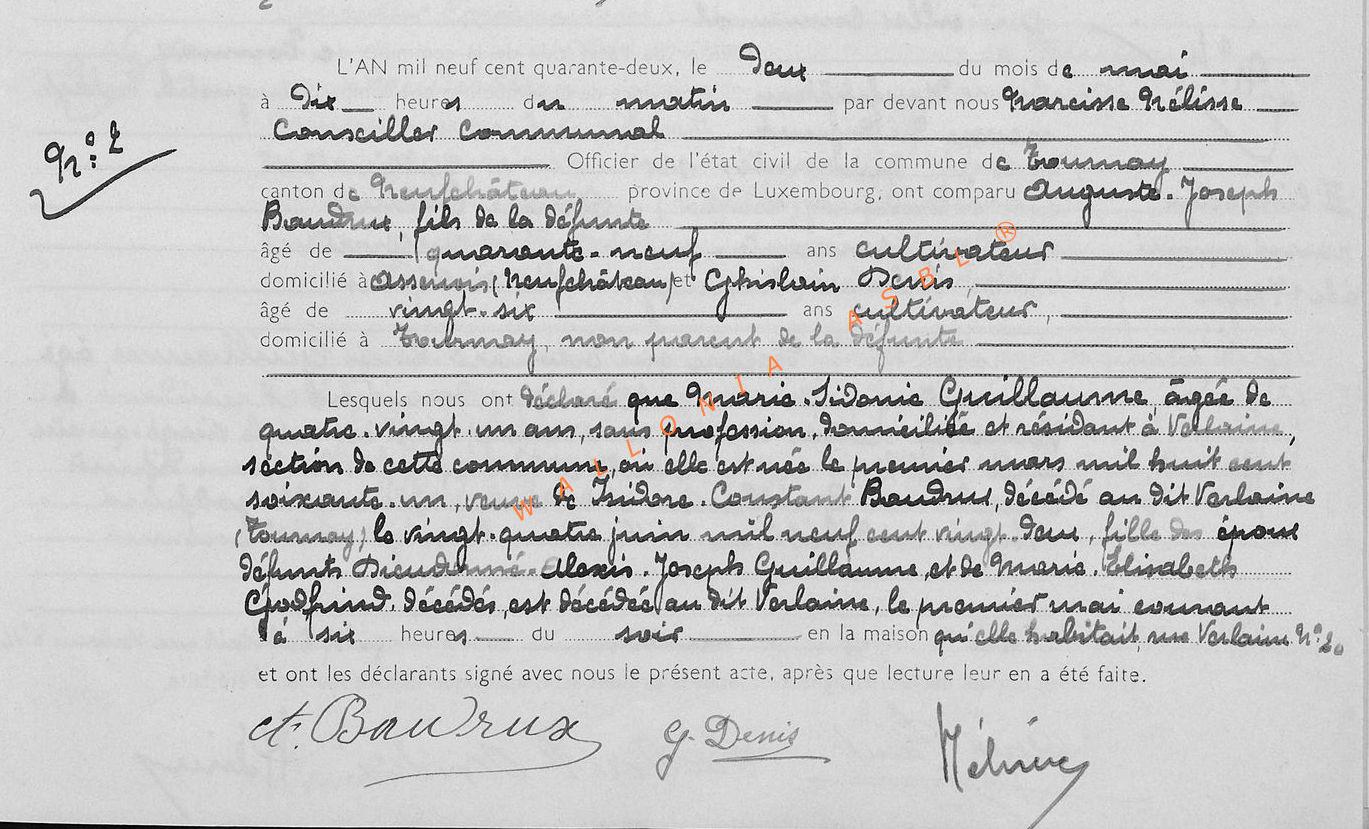 L'AN mil neuf cent quarante-deux, le deux du mois de mai
à dix heures du matin par devant nous Narcisse
Conseiller communal
N° 2
Officier de l'état civil de la commune de Tournay
canton de Neufchâteau province de Luxembourg, ont comparu Auguste-Joseph
Baudrux, fils de la défunte
âgé de quarante-neuf ans cultivateur
domicilié à Assenois (Neufchâteau) et Ghislain Denis,
âgé de vingt-six ans cultivateur,
domicilié à Tournay, non parent de la défunte
Lesquels nous ont déclaré que Marie-Sidonie Guillaume âgée de
quatre-vingt-un ans, sans profession, domiciliée et résidant à Verlaine,
section de cette commune, où elle est née le premier mars mil huit cent
soixante-un, veuve de Isidore-Constant Baudrux, décédé au dit Verlaine
(Tournay) le vingt-quatre juin mil neuf cent vingt-deux, fille des époux
défunts Dieudonné-Alexis-Joseph Guillaume, et de Marie-Elisabeth
Godfrind, décédés, est décédée au dit Verlaine, le premier mai courant
à six heures du soir en la maison qu'elle habitait, rue Verlaine N°
et ont les déclarants signé avec nous le présent acte, après que lecture leur en a été faite.
Baudrux G. Denis
WALLONIA ASBL ®